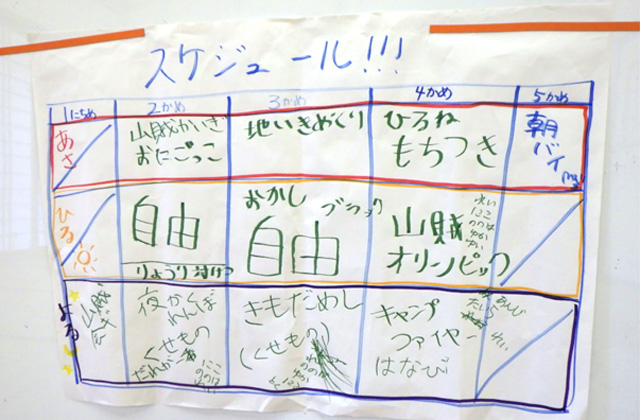 スケジュール!!!
1にちめ 2かめ 3かめ 4かめ 5かめ
あさ
山賊かいぎ
おにごっこ
地いきめぐり
ひるね
もちつき
朝
バイ
ひる
自由
りょうり対けつ
おかし
自由
山賊
オリンピック
よる
山賊
夜かくれんぼ
くせもの
だれだ
きもだめし
(くせもの)
キャンプ
ファイヤー
はなび